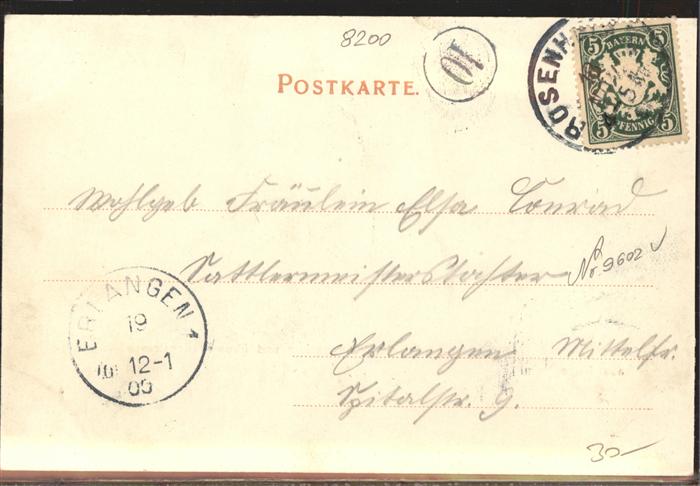 8200
10
POSTKARTE.
ROSENH
5 BAYERN 5
5 PFENNIG 5
Wohlgeb Fräulein Elsa Conrad
Sattlermeisterstochter
No 9602
Erlangen Mittelfr.
Spitalstr. 9.
ERLANGEN 1
19
12-1
00
30-